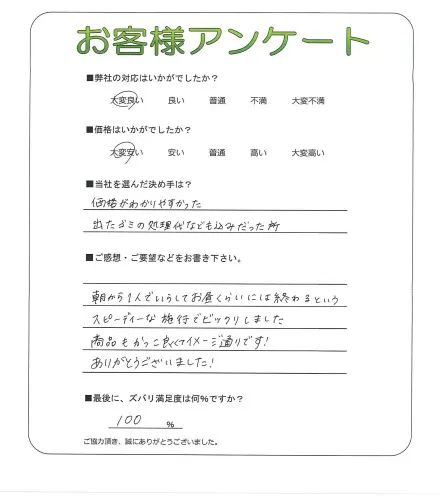 お客様アンケート
■弊社の対応はいかがでしたか？
大変良い 良い 普通 不満 大変不満
■価格はいかがでしたか？
大変安い 安い 普通 高い 大変高い
■当社を選んだ決め手は？
価格がわかりやすかった
出たゴミの処理代なども込みだった所
■ご感想・ご要望などをお書き下さい。
朝から1人でいらしてお昼くらいには終わるという
スピーディーな施行でビックリしました
商品もかっこ良くてイメージ通りです!
ありがとうございました!
■最後に、ズバリ満足度は何％ですか？
100 %
ご協力頂き、誠にありがとうございました。